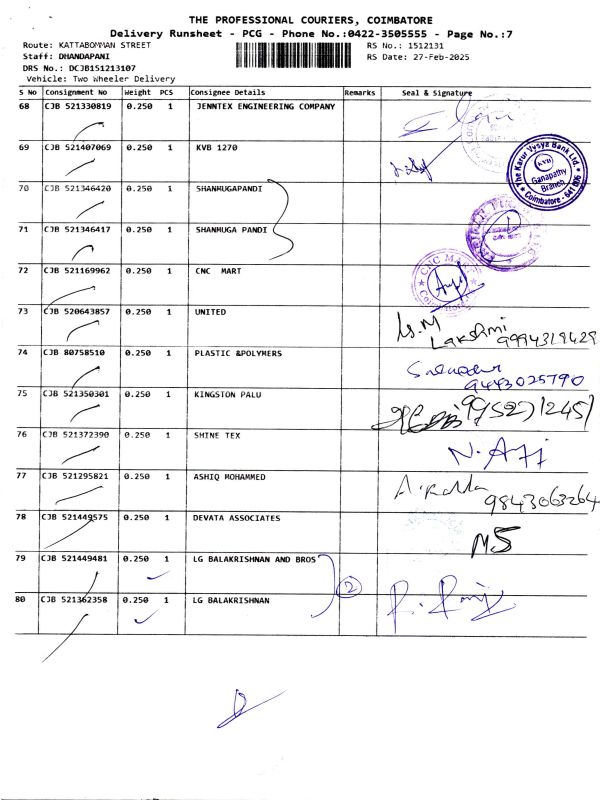 THE PROFESSIONAL COURIERS, COIMBATORE
Delivery Runsheet - PCG - Phone No.:0422-3505555 - Page No.:7
Route: KATTABOMMAN STREET RS No.: 1512131
Staff: DHANDAPANI RS Date: 27-Feb-2025
DRS No.: DCJB151213107
Vehicle: Two Wheeler Delivery
S No Consignment No Weight PCS Consignee Details Remarks Seal & Signature
68 CJB 521330819 0.250 1 JENNTEX ENGINEERING COMPANY
69 CJB 521407069 0.250 1 KVB 1270
The Karur Vysya Bank Ltd.
KVB
Ganapathy
Branch
Coimbatore - 641 006
70 CJB 521346420 0.250 1 SHANMUGAPANDI
71 CJB 521346417 0.250 1 SHANMUGA PANDI
72 CJB 521169962 0.250 1 CNC MART
CNC MART
73 CJB 520643857 0.250 1 UNITED
M Lakshmi
9994319429
74 CJB 80758510 0.250 1 PLASTIC &POLYMERS
9443025790
75 CJB 521350301 0.250 1 KINGSTON PALU
9952712451
76 CJB 521372390 0.250 1 SHINE TEX
77 CJB 521295821 0.250 1 ASHIQ MOHAMMED
9843063264
78 CJB 521449575 0.250 1 DEVATA ASSOCIATES
MS
79 CJB 521449481 0.250 1 LG BALAKRISHNAN AND BROS
2
80 CJB 521362358 0.250 1 LG BALAKRISHNAN